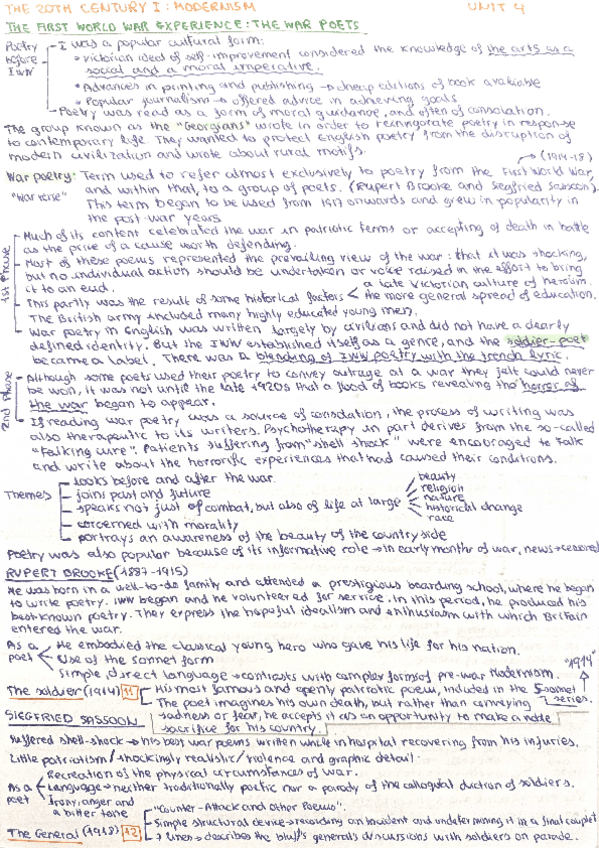 THE 20TH CENTURY I: MODERNISM UNIT 4
THE FIRST WORLD WAR EXPERIENCE: THE WAR POETS
Poetry before IWW
I was a popular cultural form:
• Victorian idea of self-improvement considered the knowledge of the arts as a
social and a moral imperative.
• Advances in printing and publishing → cheap editions of book available
• Popular journalism → offered advice in achieving goals
Poetry was read as a form of moral guidance, and often of consolation.
The group known as the "Georgians" wrote in order to reinvigorate poetry in response
to contemporary life. They wanted to protect English poetry from the disruption of
modern civilization and wrote about rural motifs.
→ (1914-18)
War poetry: Term used to refer almost exclusively to poetry from the First World War,
"War verse" and within that, to a group of poets. (Rupert Brooke and Siegfried Sassoon).
This term began to be used from 1917 onwards and grew in popularity in
the post-war years
1st Phase
Much of its content celebrated the war in patriotic terms or accepting of death in battle
as the price of a cause worth defending.
Most of these poems represented the prevailing view of the war: that it was shocking,
but no individual action should be undertaken or voice raised in the effort to bring
it to an end.
a late Victorian culture of heroism.
This partly was the result of some historical factors < the more general spread of education.
The British army included many highly educated young men.
War poetry in English was written largely by civilians and did not have a clearly
defined identity. But the IWW established itself as a genre, and the soldier-poet
became a label. There was a blending of IWW poetry with the trench lyric.
2nd Phase
Although some poets used their poetry to convey outrage at a war they felt could never
be won, it was not until the late 1920s that a flood of books revealing the horror of
the war began to appear.
If reading war poetry was a source of consolation, the process of writing was
also therapeutic to its writers. Psychotherapy in part derives from the so-called
"talking cure". Patients suffering from "shell shock" were encouraged to talk
and write about the horrorific experiences that had caused their conditions.
Themes
looks before and after the war.
joins past and future
speaks not just of combat, but also of life at large
beauty
religion
nature
historical change
race
concerned with morality
portrays an awareness of the beauty of the countryside
Poetry was also popular because of its informative role → in early months of war, news → censored
RUPERT BROOKE (1887-1915)
He was born in a well-to-do family and attended a prestigious boarding school, where he began
to write poetry. IWW began and he volunteered for service. In this period, he produced his
best-known poetry. They express the hopeful idealism and enthusiasm with which Britain
entered the war.
As a poet
He embodied the classical young hero who gave his life for his nation.
Use of the sonnet form
Simple, direct language → contrasts with complex forms of pre-war Modernism.
"1914"
The soldier (1914)
His most famous and openly patriotic poem, included in the 5-sonnet series.
The poet imagines his own death, but rather than conveying
sadness or fear, he accepts it as an opportunity to make a noble
sacrifice for his country.
SIEGFRIED SASSOON
Suffered shell-shock → his best war poems written while in hospital recovering from his injuries.
Little patriotism / shockingly realistic / violence and graphic detail
As a poet
Recreation of the physical circumstances of war.
Language → neither traditionally poetic nor a parody of the colloquial diction of soldiers.
Irony, anger and
a bitter tone
The General (1918)
"Counter-Attack and Other Poems".
Simple structural device → recording an incident and undermining it in a final couplet
7 lines → describes the bluff general's discussions with soldiers on parade.